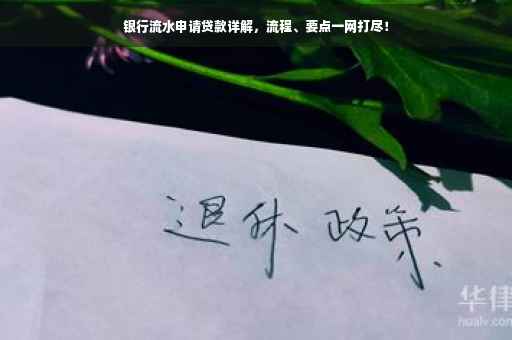 银行流水申请贷款详解，流程、要点一网打尽！
退休 政策
华律
hualv.